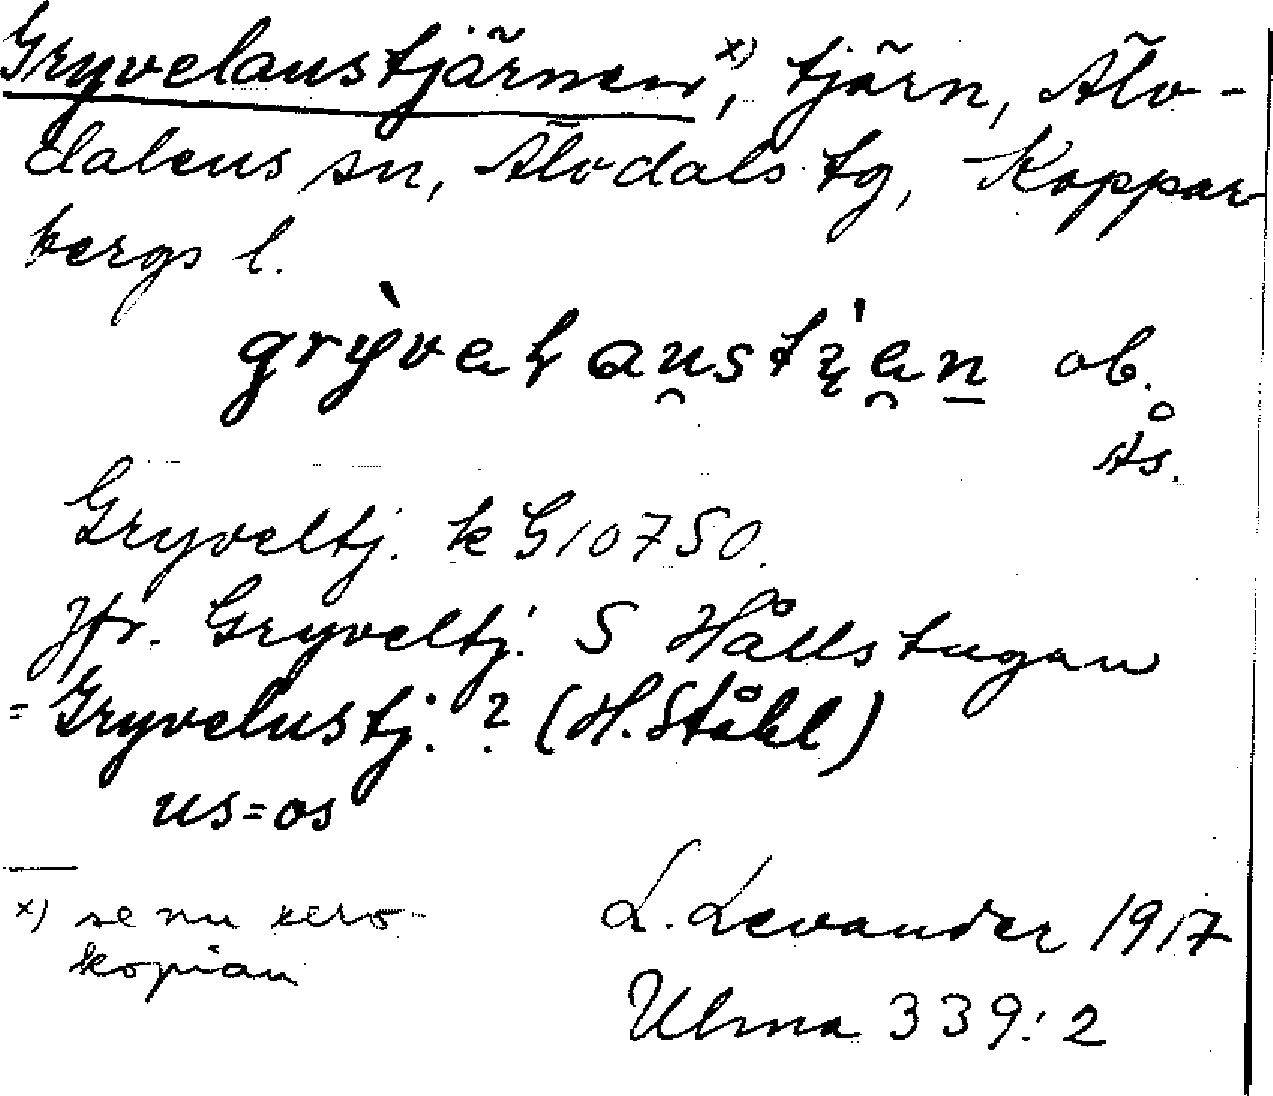 Gryvelaustjärnen x), tjärn, Älv-
dalens sn, Älvdals tg, Koppar
bergs l.
ob.
Ås.
Gryveltj. k G 10750.
Jfr. Gryveltj. S Hållstugan
= Gryvelustj. ? (H. Ståhl)
us = os
x) se nu xero-
kopian
L. Levander 1917
Ulma 339:2